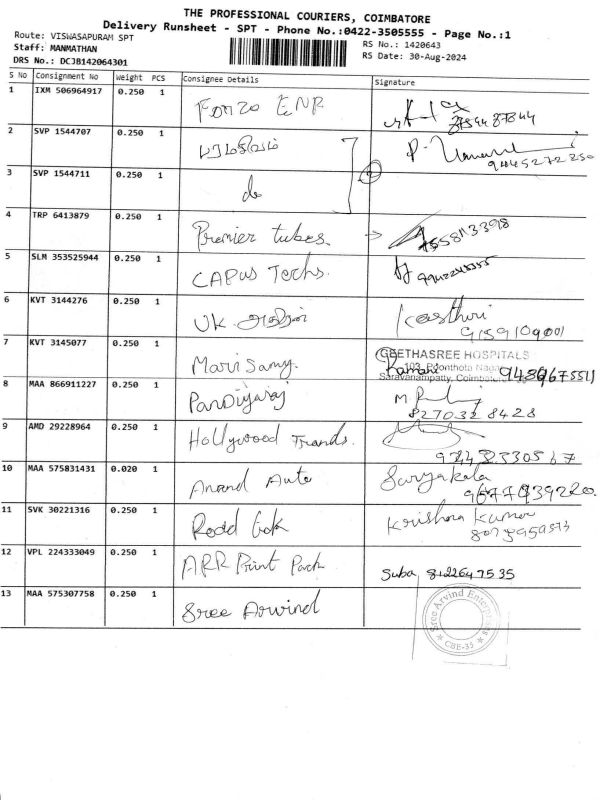 THE PROFESSIONAL COURIERS, COIMBATORE
Delivery Runsheet - SPT - Phone No.:0422-3505555 - Page No.:1
Route: VISWASAPURAM SPT
Staff: MANMATHAN
DRS No.: DCJB142064301
RS No.: 1420643
RS Date: 30-Aug-2024
S No Consignment No Weight PCS Consignee Details Signature
1 IXM 506964917 0.250 1 Fonzo ENP
2 SVP 1544707 0.250 1
3 SVP 1544711 0.250 1 do
4 TRP 6413879 0.250 1 Premier tubes.
5 SLM 353525944 0.250 1 CAPUS Techs.
6 KVT 3144276 0.250 1 UK Kasthuri
9159109001
7 KVT 3145077 0.250 1 Marisamy. GEETHASREE HOSPITALS
103, Poonthota Nagar
Saravanampatty, Coimbatore
8 MAA 866911227 0.250 1 Pandiyaraj
827032 8428
9 AMD 29228964 0.250 1 Hollywood Trends.
10 MAA 575831431 0.020 1 Anand Auto Suryakala
11 SVK 30221316 0.250 1 Krishna Kumar
12 VPL 224333049 0.250 1 ARR Print Pack Suba 8122647535
13 MAA 575307758 0.250 1 Sree Arwind
Sree Arvind Enterprises
CBE-35